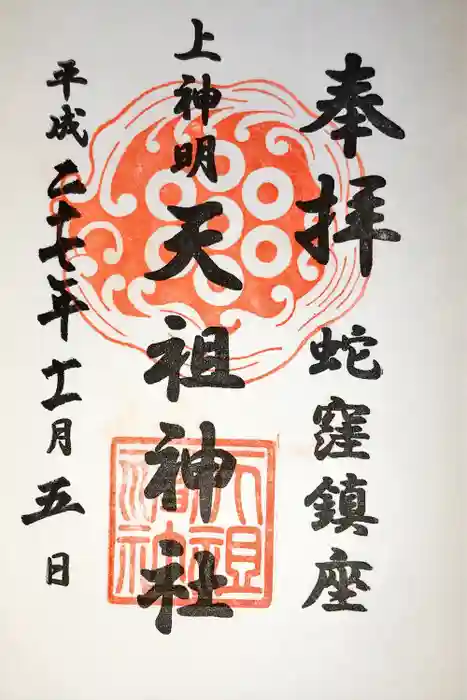 奉拝
蛇窪鎮座
上神明
天祖神社
平成二十七年十一月五日